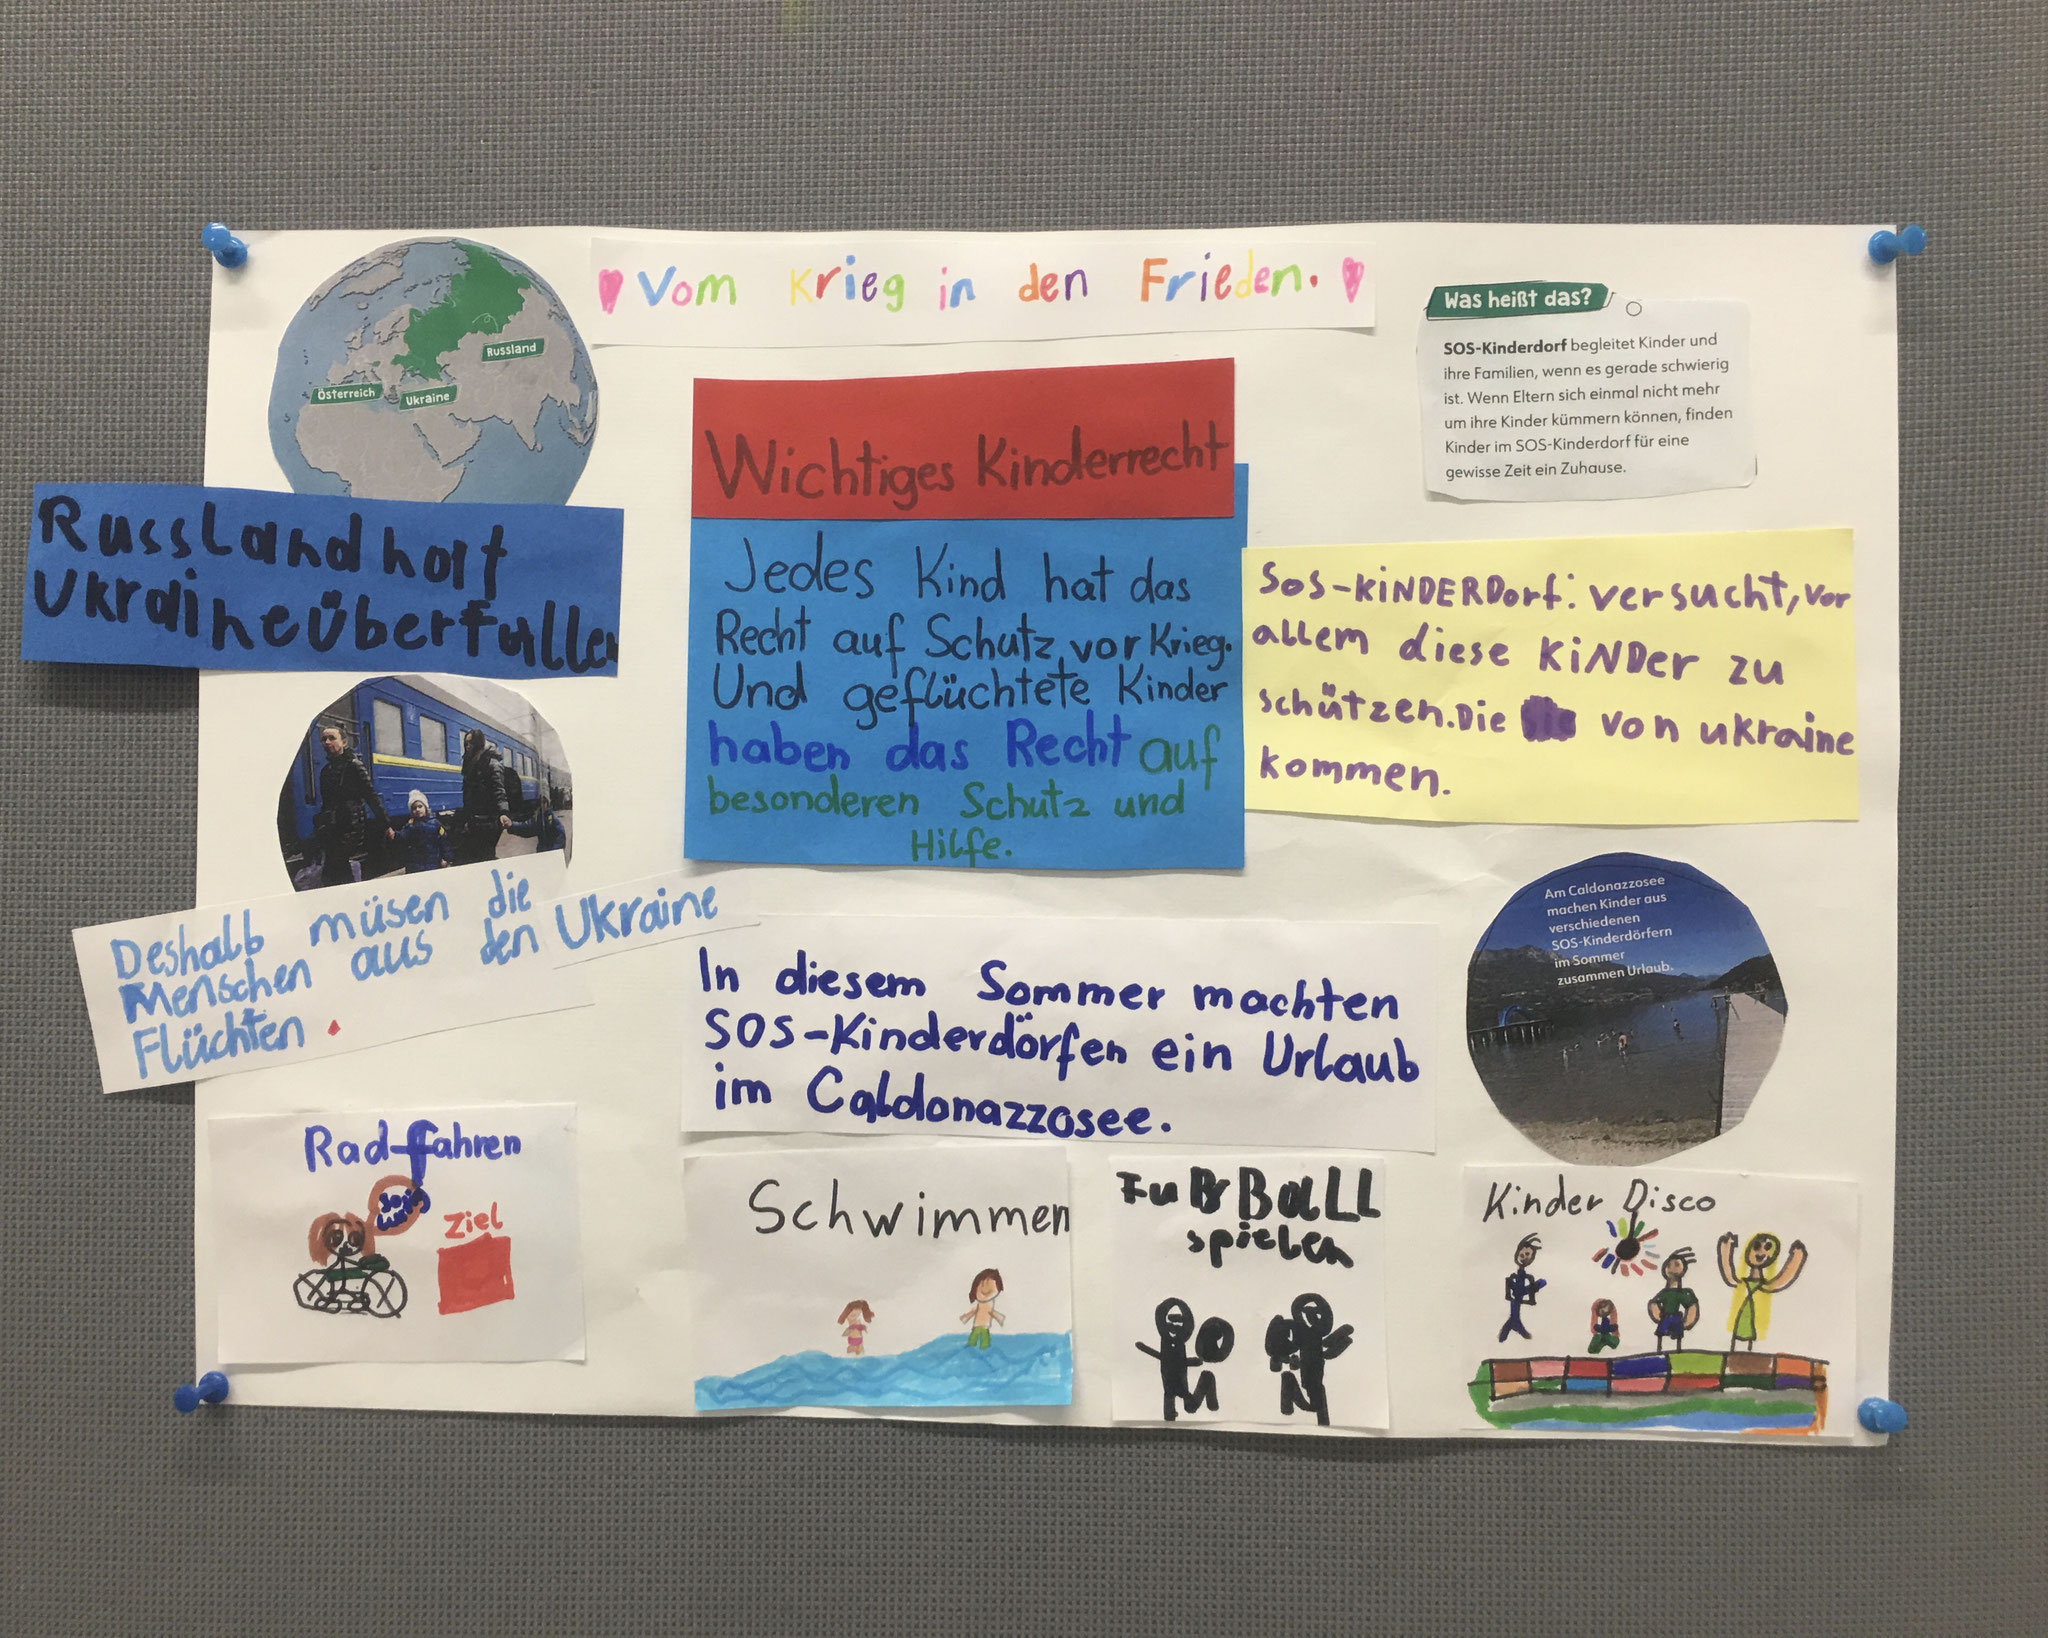 Vom Krieg in den Frieden.
Österreich
Ukraine
Russland
Russland hat
Ukraine überfallen
Deshalb müsen die
Menschen aus den Ukraine
Flüchten.
Wichtiges Kinderrecht
Jedes Kind hat das
Recht auf Schutz vor Krieg.
Und geflüchtete Kinder
haben das Recht auf
besonderen Schutz und
Hilfe.
Was heißt das?
SOS-Kinderdorf begleitet Kinder und
ihre Familien, wenn es gerade schwierig
ist. Wenn Eltern sich einmal nicht mehr
um ihre Kinder kümmern können, finden
Kinder im SOS-Kinderdorf für eine
gewisse Zeit ein Zuhause.
SOS-KiNDERDorf: versucht, vor
allem diese KiNDer zu
schützen. Die von ukraine
kommen.
In diesem Sommer machten
SOS-Kinderdörfen ein Urlaub
im Caldonazzosee.
Am Caldonazzosee
machen Kinder aus
verschiedenen
SOS-Kinderdörfern
im Sommer
zusammen Urlaub.
Rad-fahren
Ziel
Schwimmen
FußBaLL
spielen
Kinder Disco